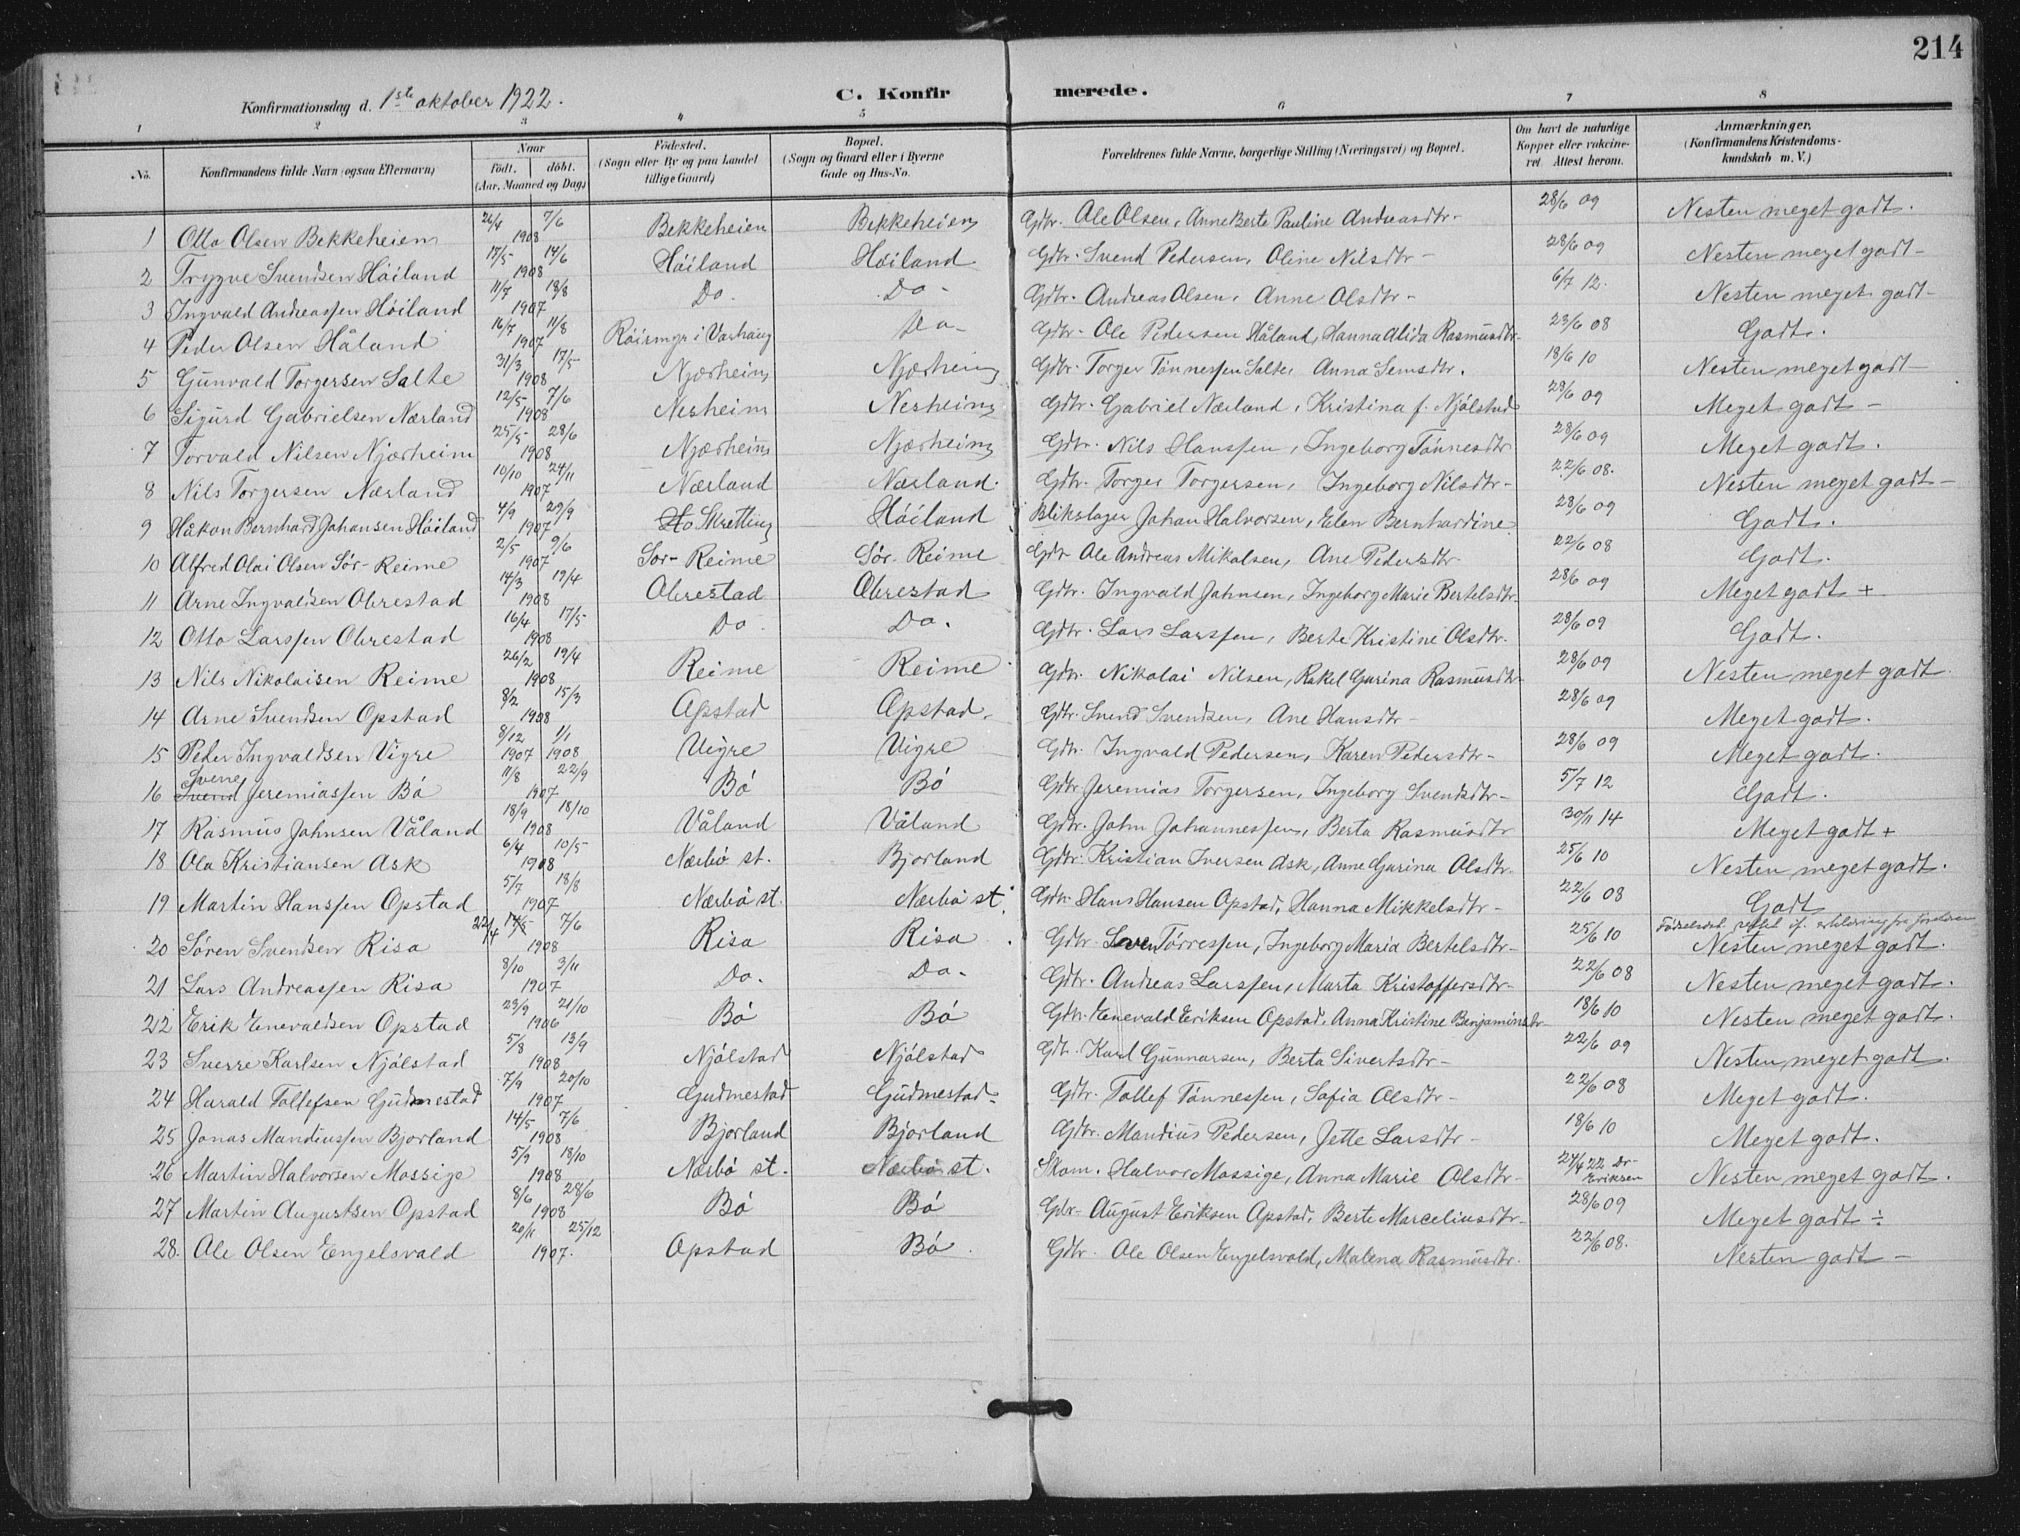 214
Konfirmationsdag d. 1ste oktober 1922. C. Konfirmerede.
1 2 3 4 5 6 7 8
No. Konfirmandens fulde Navn (ogsaa Efternavn) Naar født. døbt. (Aar, Maaned og Dag) Fødested. (Sogn eller By og paa Landet tillige Gaard) Bopæl. (Sogn og Gaard eller i Byerne Gade og Hus-No. Forældrenes fulde Navne, borgerlige Stilling (Næringsvei) og Bopæl. Om havt de naturlige Kopper eller vakcineret. Attest herom. Anmærkninger. (Konfirmandens Kristendomskundskab m. V.)
1 Otto Olsen Bekkeheien 26/4 7/6 1908 Bekkeheien Bekkeheien Gdbr. Ole Olsen, Anne Berte Pauline Andreasdtr. 28/6 09 Nesten meget godt.
2 Trygve Svendsen Høiland 17/5 14/6 1908 Høiland Høiland Gdbr. Svend Pedersen, Oline Nilsdtr- 28/6 09 Nesten meget godt-
3 Ingvald Andreassen Høiland 11/7 18/8 1907 Do. Do- Gdbr. Andreas Olsen, Anne Olsdtr- 6/7 12. Nesten meget godt-
4 Peder Olsen Håland 16/7 11/8 1907 Røismyr i Varhaug Do- Gdbr. Ole Pedersen Håland, Hanna Alida Rasmusdtr- 23/6 08 Godt.
5 Gunvald Torgersen Salte 31/3 17/5- 1908 Njærheim Njærheim Gdbr. Torger Tønnessen Salte, Anna Semsdtr. 18/6 10 Nesten meget godt-
6 Sigurd Gabrielsen Nærland 12/5- 7/6 1908 Nesheim Nesheim Gdbr. Gabriel Nærland, Kristina f. Njølstad 28/6 09 Meget godt-
7 Torvald Nilsen Njærheim 25/5- 28/6 1908 Njærheim Njærheim Gdbr. Nils Hanssen, Ingeborg Tønnesdtr 28/6 09 Meget godt.
8 Nils Torgersen Nærland 10/10 24/11 1907 Nærland Nærland. Gdbr. Torger Torgersen, Ingeborg Nilsdtr- 22/6 08. Nesten meget godt-
9 Håkon Bernhard Johansen Høiland 4/9 29/9 1907 Skretting Høiland Blikslager Johan Halvorsen, Elen Bernhardine 28/6 09 Godt.
10 Alfred Olai Olsen Sør-Reime 2/5- 9/6 1907 Sør-Reime Sør-Reime Gdbr Ole Andreas Mikalsen, Ane Pedersdtr- 22/6 08 Godt.
11 Arne Ingvaldsen Obrestad 14/3 19/4 1908 Obrestad Obrestad Gdbr. Ingvald Jahnsen, Ingeborg Marie Bertelsdtr- 28/6 09 Meget godt +
12 Otto Larssen Obrestad 16/4 17/5- 1908 Do. Do. Gdbr. Lars Larssen, Berte Kristine Olsdtr. 28/6 09 Godt.
13 Nils Nikolaisen Reime 26/2 19/4 1908 Reime Reime Gdbr. Nikolai Nilsen, Rakel Gurina Rasmusdtr- 28/6 09 Nesten meget godt
14 Arne Svendsen Opstad 8/2 15/3 1908 Opstad Opstad. Gdbr. Svend Svendsen, Ane Hansdtr- 28/6 09 Meget godt.
15 Peder Ingvaldsen Vigre 8/12 1/1 1907 1908 Vigre Vigre Gdbr. Ingvald Pedersen, Karen Pedersdtr- 28/6 09 Meget godt.
16 Sverre Svend Jeremiassen Bø 11/8 22/9 1907 Bø Bø Gdbr. Jeremias Torgersen, Ingeborg Svendsdtr- 5/7 12 Godt.
17 Rasmus Jahnsen Våland 18/9 18/10 1908 Våland Våland Gdbr. Jahn Johannessen, Berta Rasmusdtr 30/11 14 Meget godt +
18 Ola Kristiansen Ask 6/4 10/5- 1908 Nærbø st. Bjorland Gdbr. Kristian Iversen Ask, Anne Gurina Olsdtr. 25/6 10 Nesten meget godt.
19 Martin Hanssen Opstad 5/7 18/8 1907 Nærbø st. Nærbø st. Gdbr. Hans Hansen Opstad, Hanna Mikkelsdtr- 22/6 08 Godt
20 Søren Svendsen Risa 22/4 14/5- 7/6 1908 Risa Risa Gdbr. Sven Tørressen, Ingeborg Maria Bertelsdtr- 25/6 10 Fødselsdat. rettet if. erklæring fra forældrene Nesten meget godt.
21 Lars Andreassen Risa 8/10 3/11 1907 Do. Do- Gdbr. Andreas Larssen, Marta Kristoffersdtr- 22/6 08 Nesten meget godt.
22 Erik Enevaldsen Opstad 23/9 21/10 1906 Bø Bø Gdbr. Enevald Eriksen Opstad, Anna Kristine Benjaminsdtr 18/6 10 Nesten meget godt.
23 Sverre Karlsen Njølstad 5/8 13/9 1908 Njølstad Njølstad Gdb. Karl Gunnarsen, Berta Sivertsdtr- 22/6 09 Nesten meget godt.
24 Harald Tollefsen Gudmestad 7/9 20/10 1907 Gudmestad Gudmestad- Gdbr. Tollef Tønnessen, Sofia Olsdtr- 22/6 08 Meget godt.
25 Jonas Mandiussen Bjorland 14/5 7/6 1908 Bjorland Bjorland Gdbr. Mandius Pedersen, Jette Larsdtr- 18/6 10 Meget godt.
26 Martin Halvorsen Mossige 5/9 18/10 1908 Nærbø st. Nærbø st. Skom. Halvor Mossige, Anna Marie Olsdtr- 27/4 22 Dr- Eriksen Nesten meget godt.
27 Martin Augustsen Opstad 8/6 28/6 1908 Bø Bø Gdbr- August Eriksen Opstad, Berte Marceliusdtr- 28/6 09 Meget godt ÷
28. Ole Olsen Engelsvald 20/11 25/12 1907. Opstad Bø Gdbr. Ole Olsen Engelsvold, Malena Rasmusdtr. 22/6 08. Nesten godt-